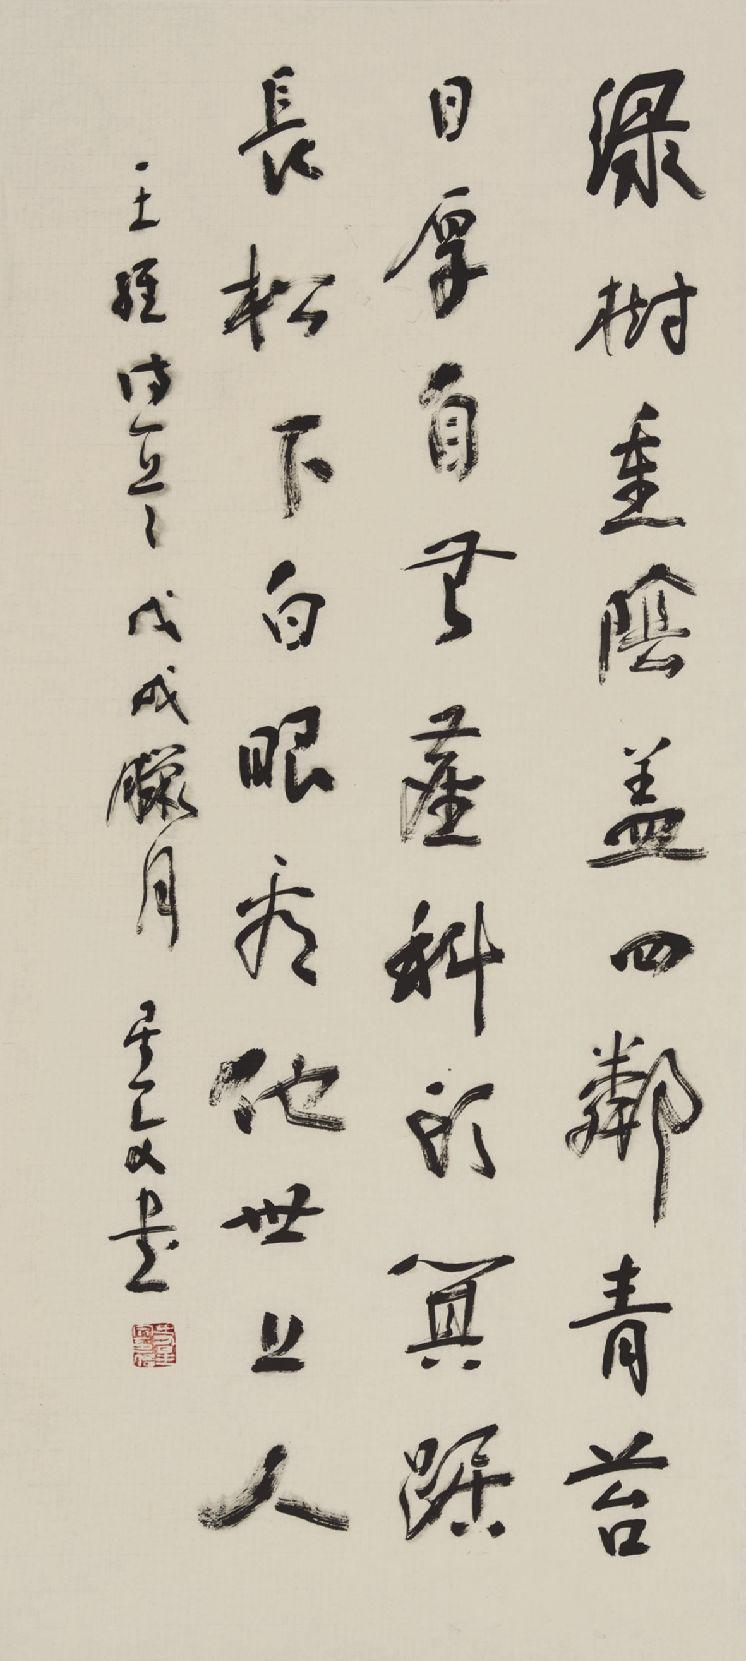 綠樹重陰盖四鄰青苔
日厚自无塵科頭箕踞
長松下白眼看他世上人
王維詩 戊戌臘月 書